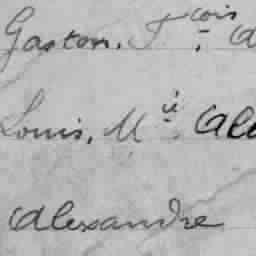 Gaston, Fcois
Louis, Mie Ale
Alexandre